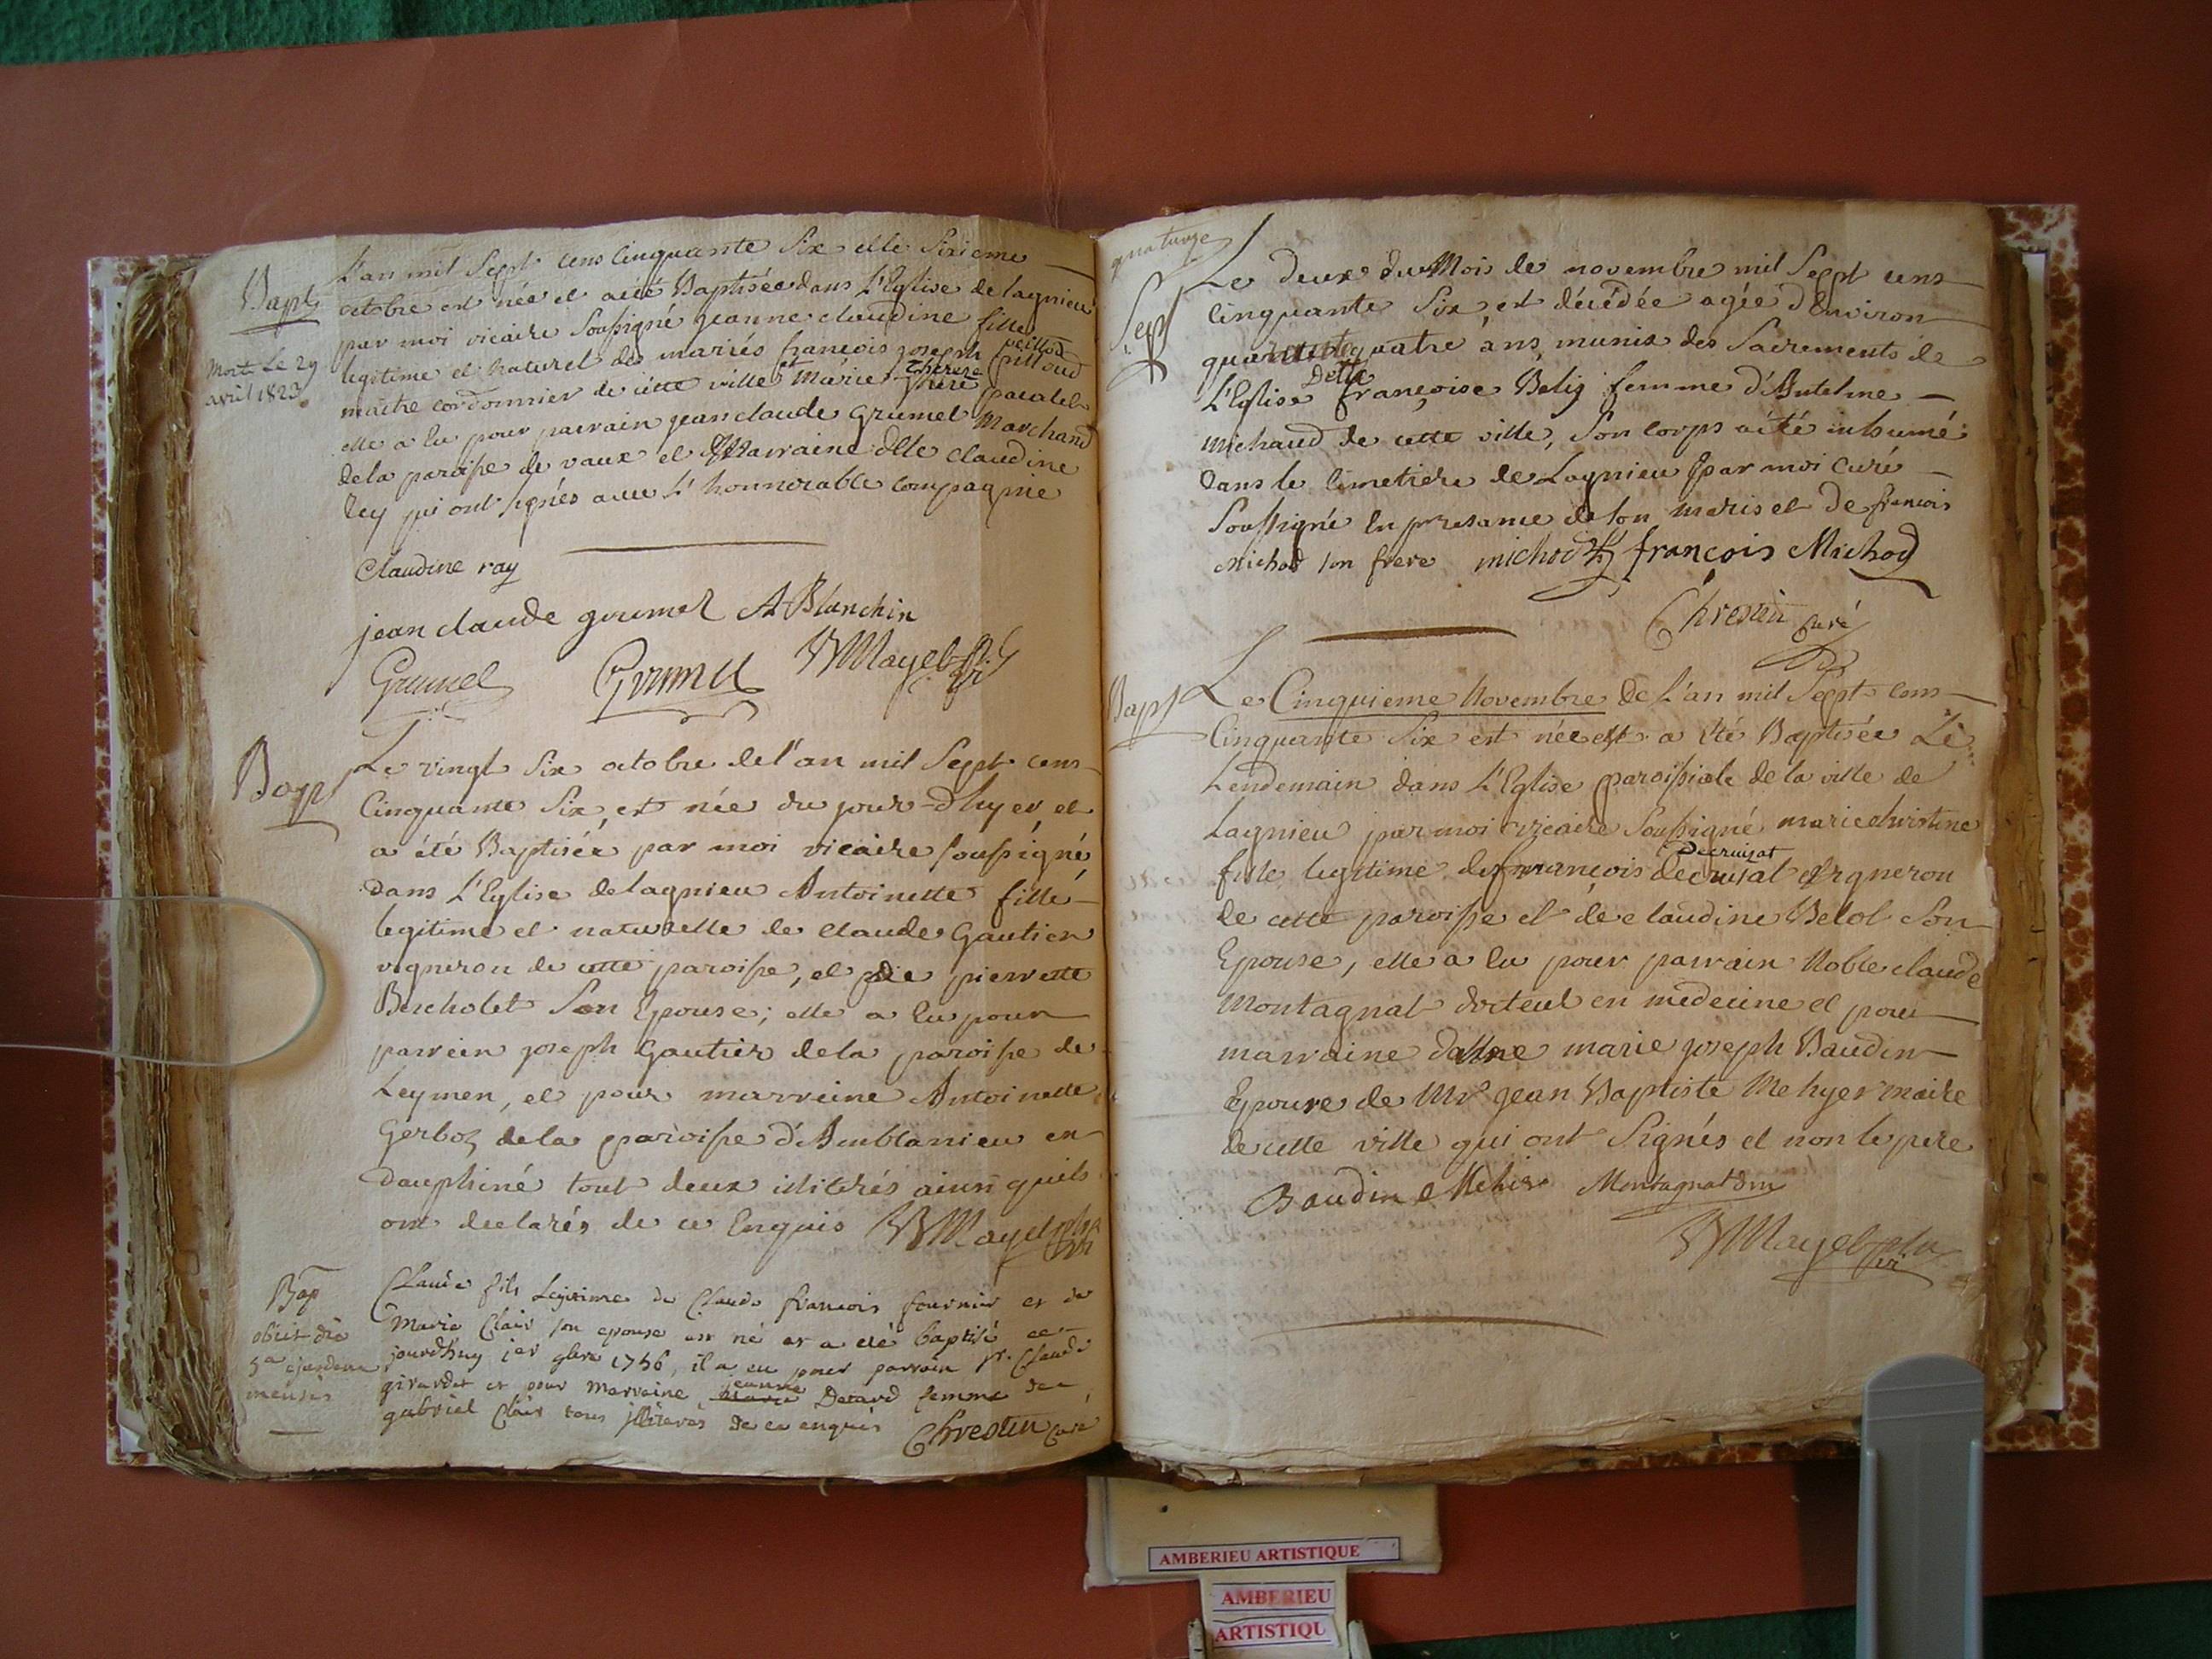 Bapt
L'an mil Sept cens Cinquante Six et le Sixieme
octobre est née et a été Baptisée dans L'Eglise de lagnieu
par moi vicaire Soussigné jeanne claudine fille
legitime et naturel des mariés françois joseph pilloud
peillod
Morte Le 29
avril 1823
maitre cordonnier de cette ville et Marie therese
elle a Eu pour parrain jean claude Grumel Marchand
de la paroisse de vaux et Marraine dlle claudine
Rey qui ont signés avec L'honnorable compagnie
claudine ray
jean claude grumel A Blanchin
Grumel Grumel Mayel
Bap
Le vingt Six octobre de l'an mil Sept cens
Cinquante Six, est née du jour d'hyer, et
a été Baptisée par moi vicaire soussigné
dans L'Eglise de lagnieu Antoinette fille
legitime et naturelle de claude Gautier
vigneron de cette paroisse, et de pierrette
Bercholet Son Epouse; elle a Eu pour
parrein joseph Gautier de la paroisse de
Leymen, et pour marreine Antoinette
Gerboz de la paroisse d'Amblanieu en
dauphiné tout deux illitérés ainsi quils
ont declarés de ce Enquis Mayel
Bap
obiit die
5a ejusdem
mensis
Claude fils Legitime de Claude françois fournier et de
Marie Clair son epouse est né et a eté baptisé ce
jourdhuy 1er 9bre 1756, il a eu pour parrain Claude
girardet et pour Marraine jeanne Detard femme de
gabriel Clair tous illiterés de ce enquis Chrestin curé
quatorze
Sept
Le deux du Mois de novembre mil Sept cens
Cinquante Six, est décédée agée d'Environ
quarante quatre ans, munie des Sacrements de
L'Eglise Dette françoise Belig femme d'Antelme
Michaud de cette ville, Son corps a été inhumé
dans le Cimetiere de Lagnieu par moi curé
Soussigné En presance de son maris et De francois
Michod son frere michod françois Michod
Chrestin curé
Bapt
Le Cinquieme Novembre de L'an mil Sept cens
Cinquante Six est née et a été Baptisée Le
Lendemain dans L'Eglise paroissiale de la ville de
Lagnieu par moi vicaire Soussigné marie christine
fille legitime de françois decrusat vigneron
Decruisat
de cette paroisse et de claudine Belot Son
Epouse, elle a Eu pour parrain Noble claude
Montagnat docteur en medecine et pour
marraine dame marie joseph Baudin
Epouse de Mr jean Baptiste Mehyer maire
de cette ville qui ont Signés et non le pere
Baudin Mehier Montagnat dm
Mayel
AMBERIEU ARTISTIQUE
AMBERIEU
ARTISTIQU